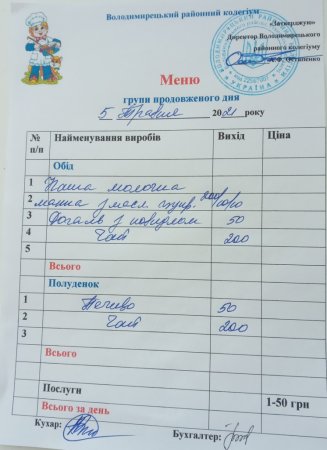 Володимирецький районний колегіум
«Затверджую»
Директор Володимирецького
районного колегіуму
А.Ф. Остапенко
Меню
групи продовженого дня
5 Травня 2021 року
№ п/п Найменування виробів Вихід Ціна
Обід
1 Каша молочна
2 манна з масл. 200/10/10
3 Рогалик з повидлом 50
4 Чай 200
5
Всього
Полуденок
1 Печиво 50
2 Чай 200
3
Всього
Послуги 1-50 грн
Всього за день
Кухар: Бухгалтер: